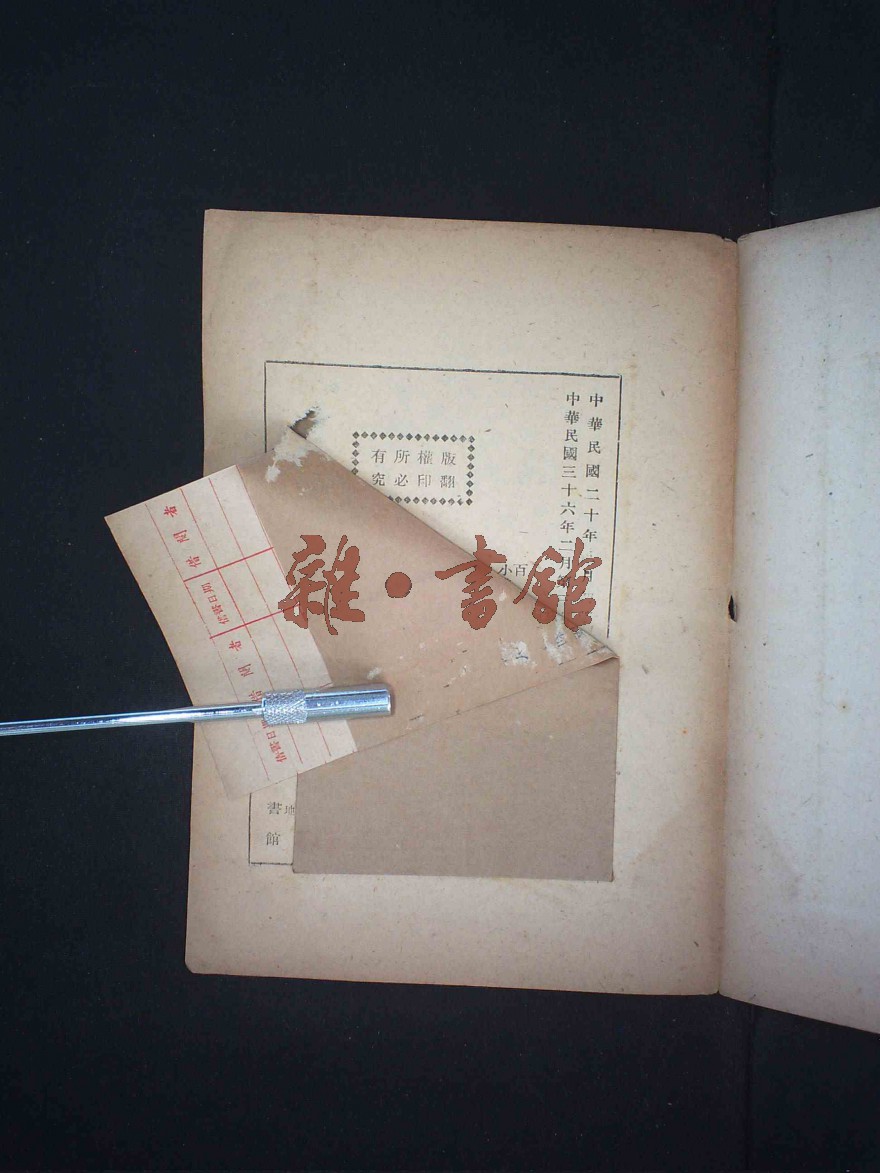 中華民國二十年
中華民國三十六年二月
版權所有
翻印必究
百
小
地
書館
雜·書館
借閱者
借書日期
借閱者
借書日期